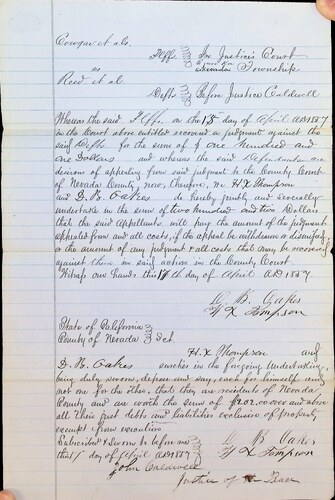 Cowger et als.
Plffs } In Justice's Court
vs Township
Reed et al
Defts } Before Justice Caldwell
Whereas the said Plffs on the 15 day of April AD 1857
in the Court above entitled recovered a judgment against the
said Defts for the sum of $ One Hundred and
one Dollars and whereas the said Defendants are
desirous of appealing from said judgment to the County Court
of Nevada County, now, therefore, we H X Thompson
and D. B. Oakes do hereby jointly and severally
undertake in the sum of two hundred and two Dollars
that the said Appellants will pay the amount of the judgment
appealed from and all costs, if the appeal be withdrawn or dismissed,
or the amount of any judgment & all costs that may be recovered
against them in said action in the County Court
Witness our hands this 17th day of April AD 1857.
D. B. Oakes
H X Timpson
State of California
County of Nevada } Sct.
H. X Thompson and
D. B. Oakes sureties in the foregoing Undertaking,
being duly sworn, depose and say, each for himself and
not one for the other, that they are residents of Nevada
County and are worth the sum of $202.00 over and above
all their just debts and liabilities exclusive of property
exempt from execution
Subscribed & Sworn to before me
this 17 day of April AD 1857
D B Oakes
H X Timpson
John Caldwell
Justice of the Peace